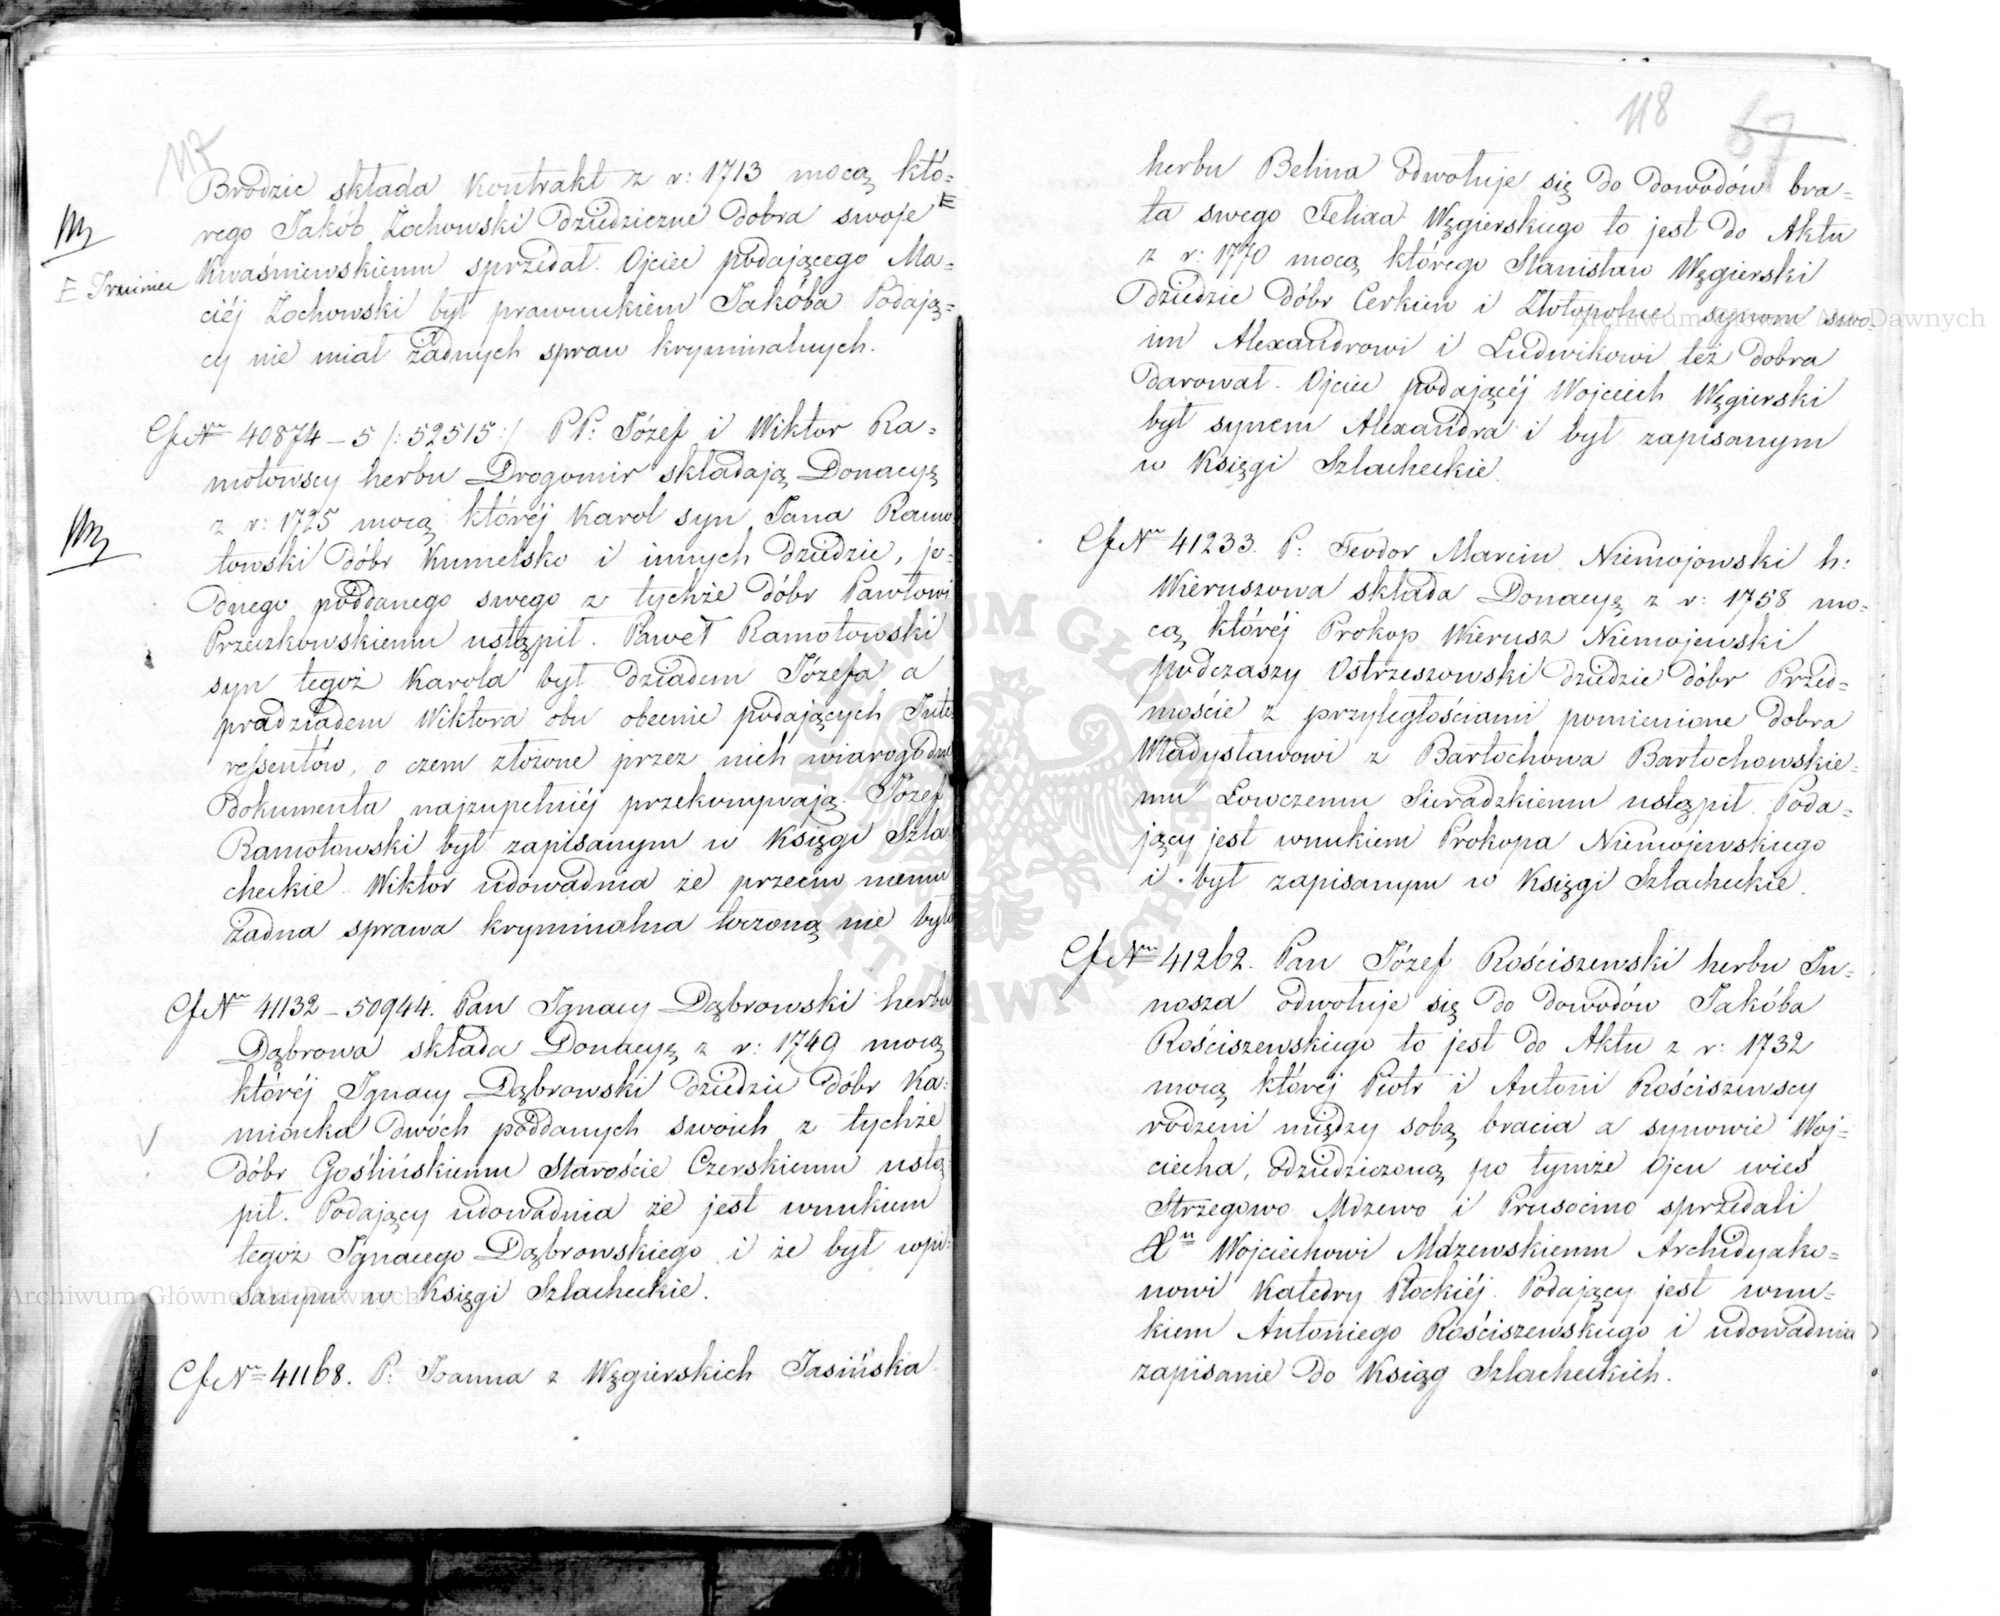 117
Brodzic składa Kontrakt z r: 1713 mocą któ=
rego Jakób Żochowski dziedziczne dobra swoje E
Kwaśniewskiemu sprzedał. Ojciec podającego Ma=
E
ciéj Żochowski był prawnukiem Jakóba Podają=
cy nie miał żadnych spraw kryminalnych.
40874-5 /:52515:/ PP: Józef i Wiktor Ra=
mołowscy herbu Drogomir składają Donacyę
z r: 1725 mocą któréj Karol syn Jana Ramo
towski dóbr Kumelsko i innych dziedzic, je=
dnego poddanego swego z tychże dóbr Pawłowi
Przeczkowskiemu ustąpił. Paweł Ramotowski
syn tegoż Karola był dziadem Józefa a
pradziadem Wiktora obu obecnie podających Inte=
ressentów, o czem złożone przez nich wiarogodne
dokumenta najzupełniéj przekonywają. Józef
Ramotowski był zapisanym w Księgi Szla
checkie. Wiktor udowadnia że przeciw niemu
żadna sprawa kryminalna toczoną nie była
41132-50944. Pan Ignacy Dąbrowski herbu
Dąbrowa składa Donacyę z r: 1749 mocą
któréj Ignacy Dąbrowski dziedzic dóbr Ka=
mionka dwóch poddanych swoich z tychże
dóbr Goślińskiemu Staroście Czerskiemu ustą
pił. Podający udowadnia że jest wnukiem
tegoż Ignacego Dąbrowskiego i że był wpi=
sanym w Księgi Szlacheckie.
41168. P: Joanna z Węgierskich Jasińska
118 67
herbu Belina odwołuje się do dowodów bra=
ta swego Felixa Węgierskiego to jest do Aktu
z r: 1770 mocą którego Stanisław Węgierski
dziedzic dóbr Cerkiew i Złotopolne synom swo=
im Alexandrowi i Ludwikowi też dobra
darował. Ojciec podającéj Wojciech Węgierski
był synem Alexandra i był zapisanym
w Księgi Szlacheckie.
41233. P: Teodor Marcin Niemojowski h:
Wieruszowa składa Donacyę z r: 1758 mo=
cą któréj Prokop Wierusz Niemojewski
podczaszy Ostrzeszowski dziedzic dóbr Przed=
moście z przyległościami pomienione dobra
Władysławowi z Bartochowa Bartochowskie=
mu Łowczemu Sieradzkiemu ustąpił. Poda=
jący jest wnukiem Prokopa Niemojewskiego
i był zapisanym w Księgi Szlacheckie.
41262. Pan Józef Rościszewski herbu Ju=
nosza odwołuje się do dowodów Jakóba
Rościszewskiego to jest do Aktu z r: 1732
mocą któréj Piotr i Antoni Rościszewscy
rodzeni między sobą bracia a synowie Woj=
ciecha, odziedziczoną po tymże Ojcu wieś
Strzegowo Mdzewo i Prusocino sprzedali
Wojciechowi Mdzewskiemu Archidyako=
nowi Katedry Płockiéj. Podający jest wnu=
kiem Antoniego Rościszewskiego i udowadnia
zapisanie do Ksiąg Szlacheckich.
Archiwum Główne Akt Dawnych
Archiwum Główne Akt Dawnych
ARCHIWUM GŁÓWNE AKT DAWNYCH